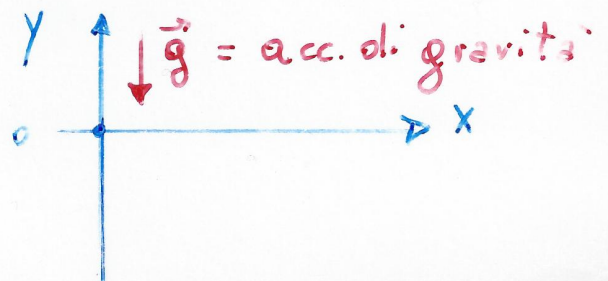 y g⃗ = acc. di gravità
0 x